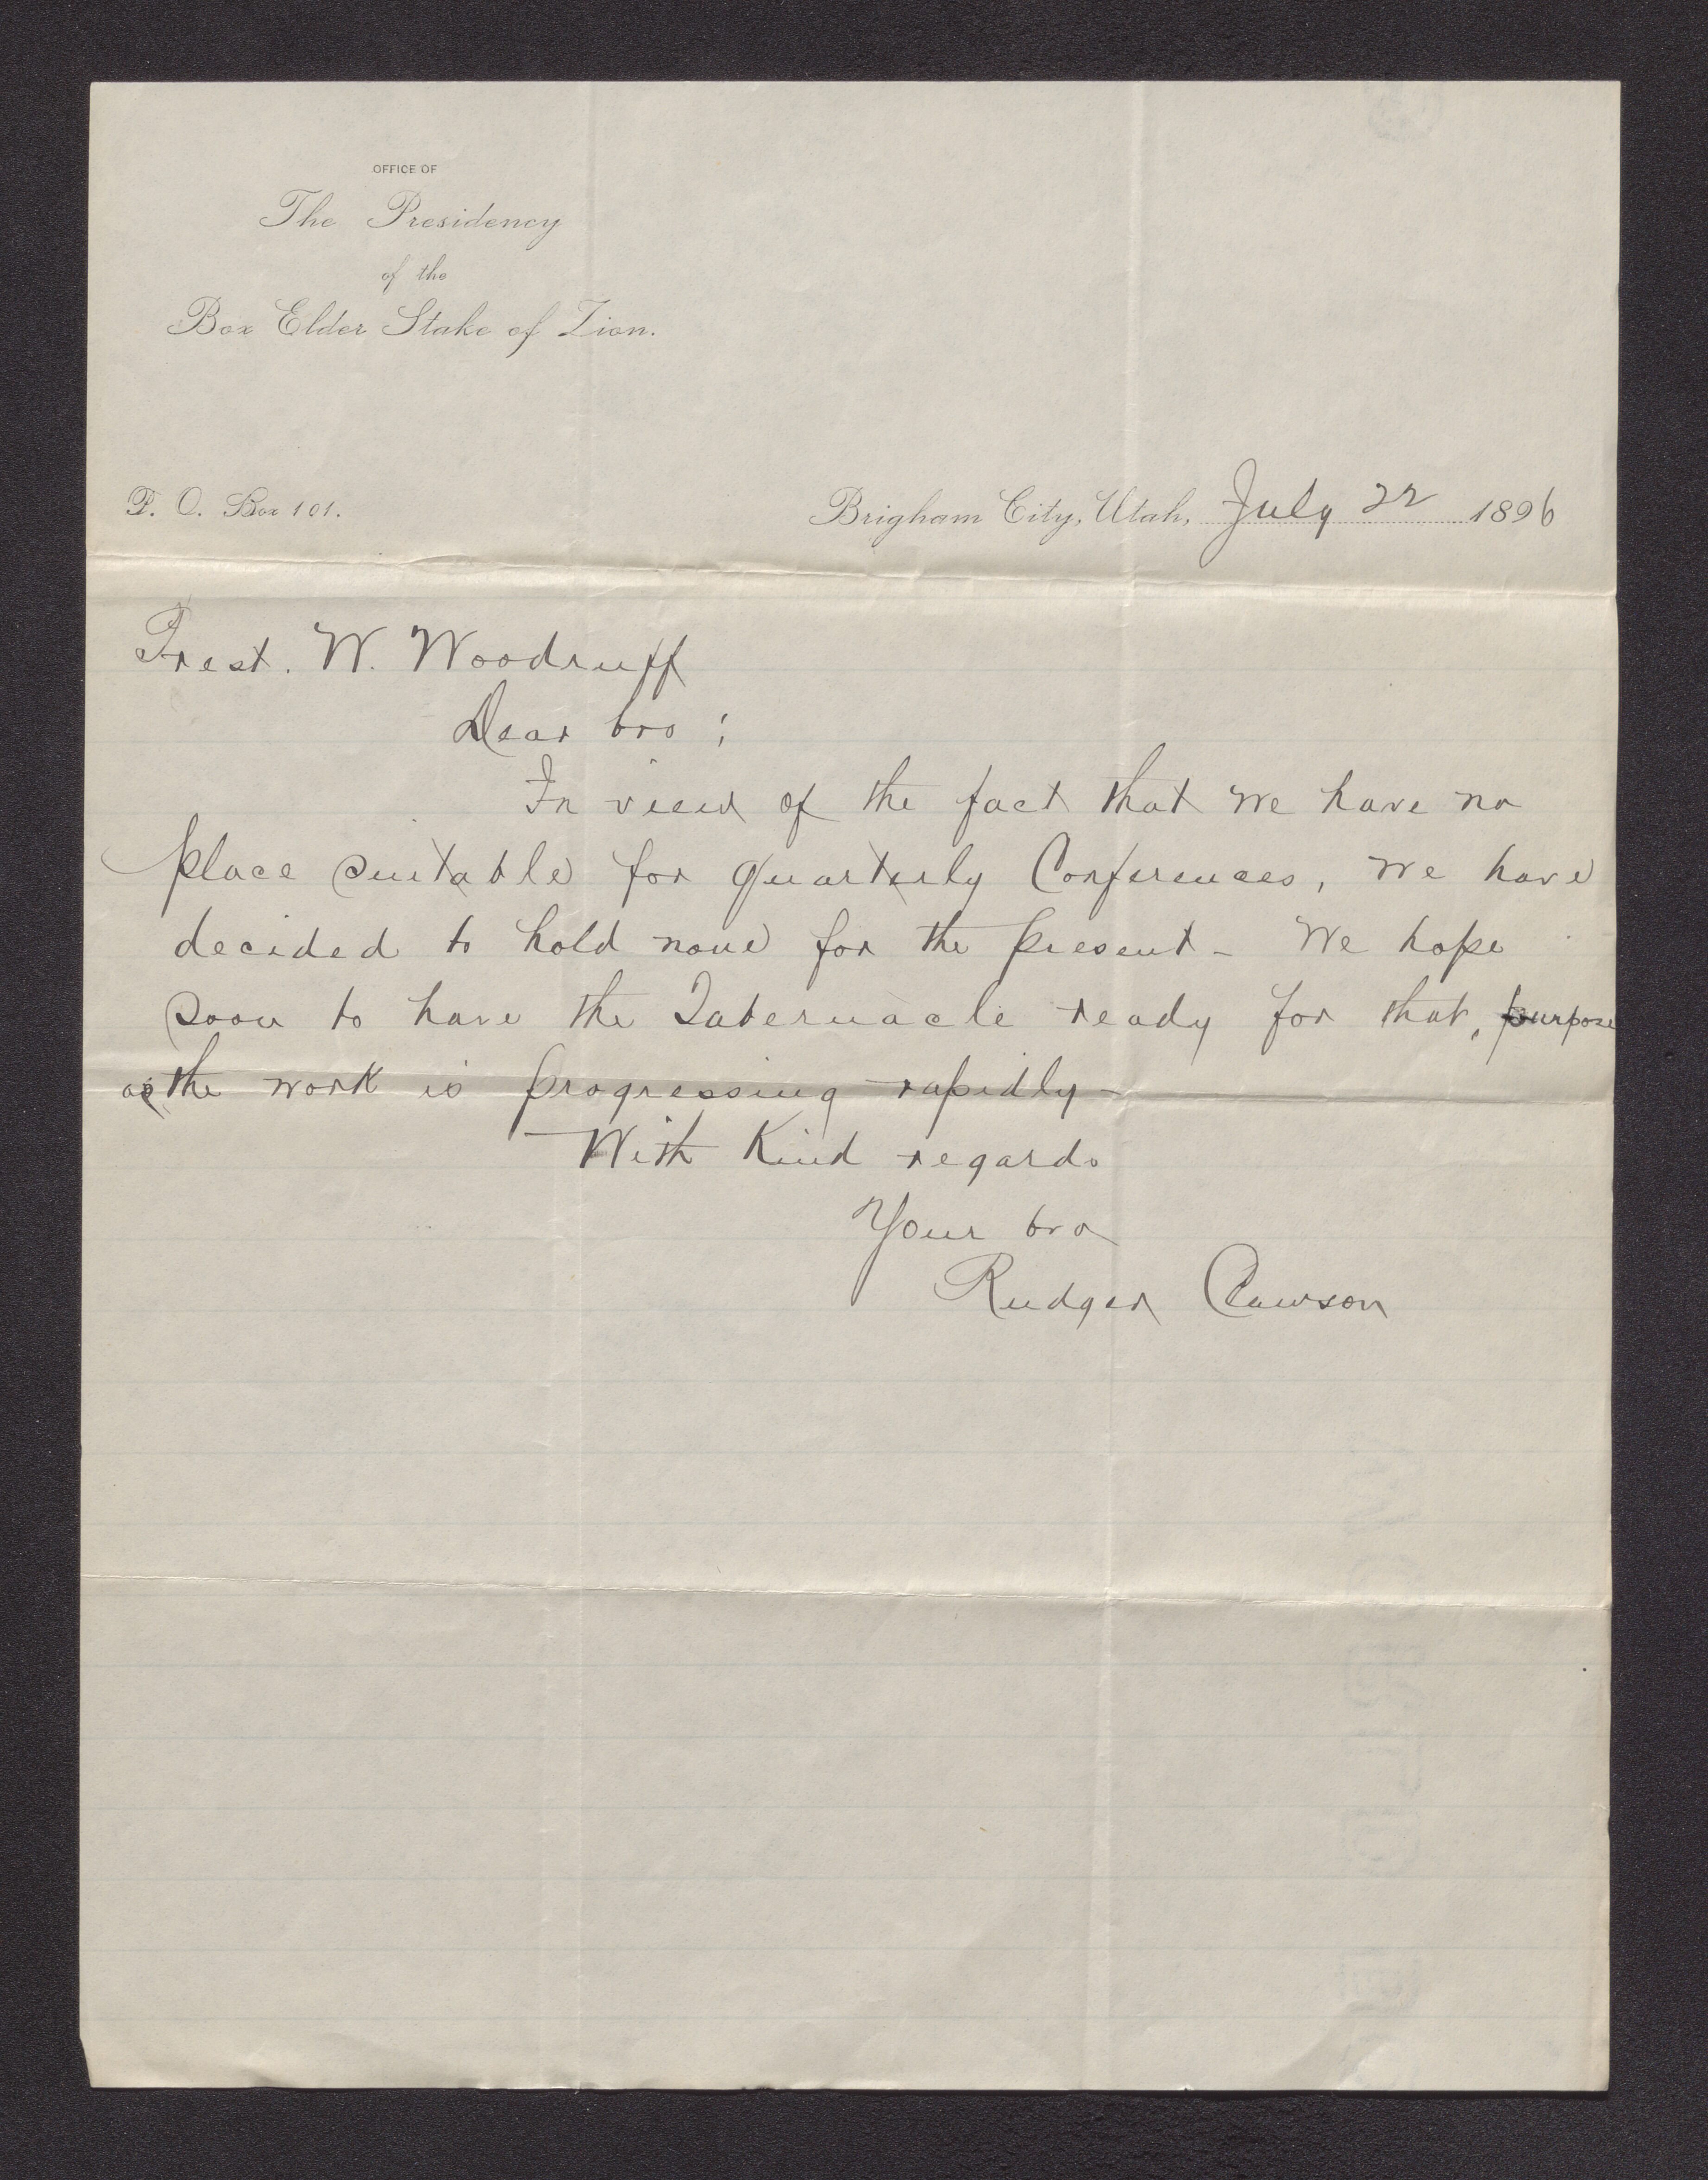 OFFICE OF
The Presidency
of the
Box Elder Stake of Zion.
P. O. Box 101.
Brigham City, Utah, July 22 1896
Prest. W. Woodruff
Dear bro;
In view of the fact that we have no
place suitable for quarterly Conferences, we have
decided to hold none for the present – We hope
soon to have the Tabernacle ready for that, purpose
as the work is progressing rapidly –
With Kind regards
Your bro
Rudger Clawson